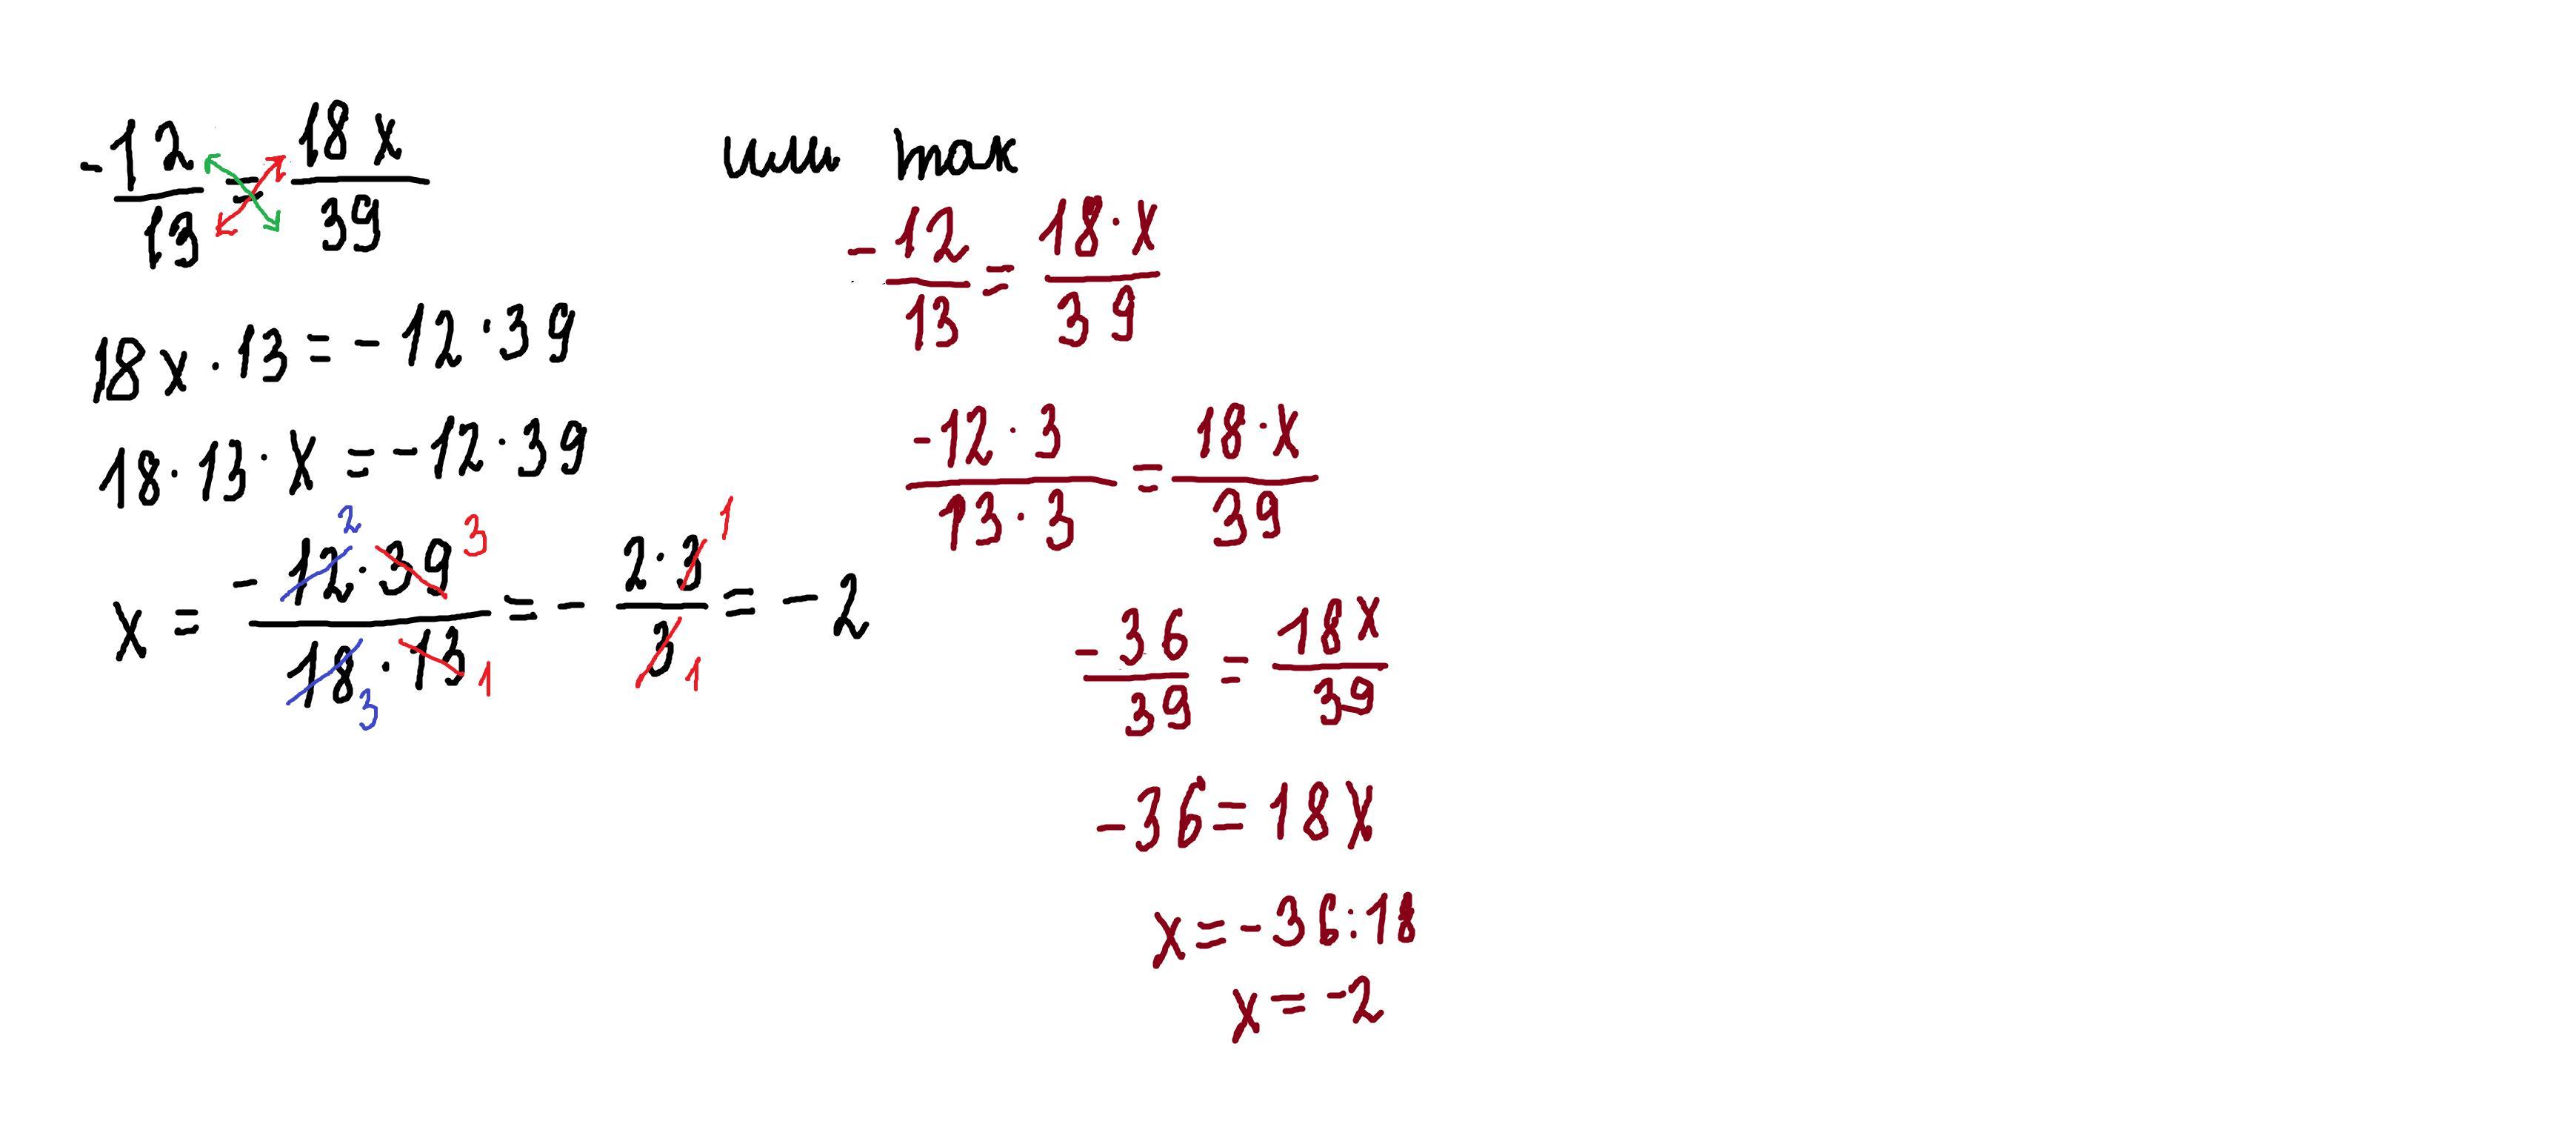 -12/13 = 18x/39
18x · 13 = - 12 · 39
18 · 13 · x = - 12 · 39
x = - 12 2 · 39 3 / 18 3 · 13 1 = - 2 · 3 1 / 3 1 = - 2
или так
- 12/13 = 18 · x/39
-12 · 3/13 · 3 = 18 · x/39
-36/39 = 18x/39
-36 = 18x
x = -36 : 18
x = -2